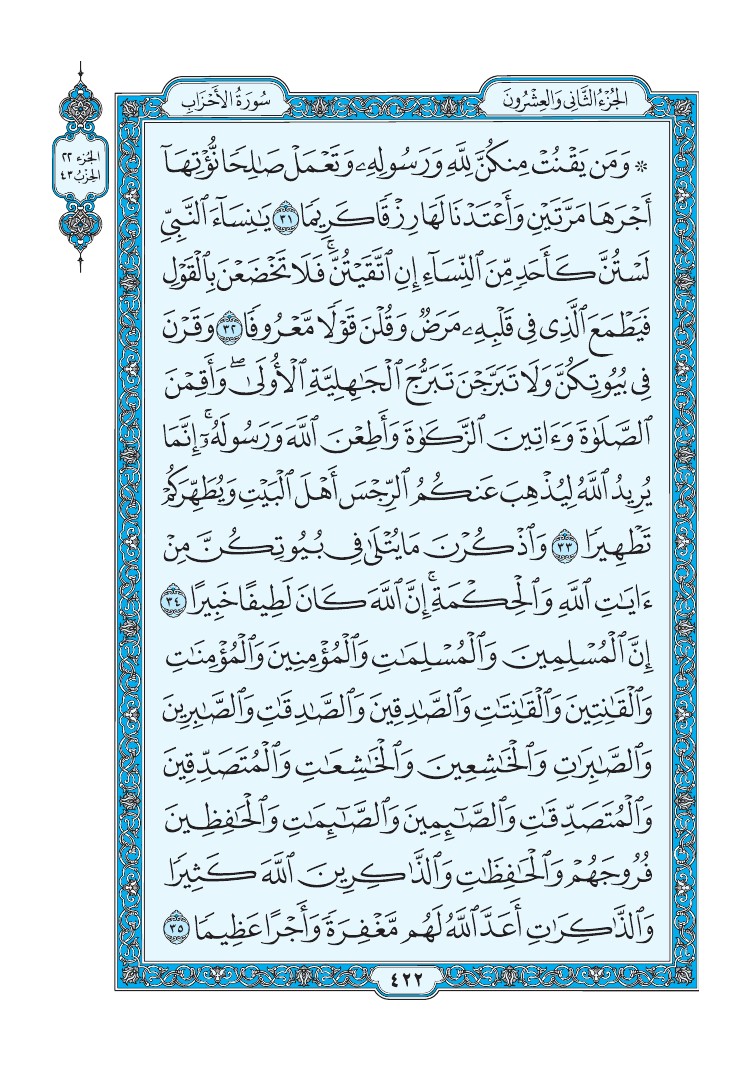 الجُزْءُ الثَّانِي وَالعِشْرُونَ
سُورَةُ الأَحْزَابِ
الجُزء ٢٢
الحِزبُ ٤٣
۞ وَمَن يَقۡنُتۡ مِنكُنَّ لِلَّهِ وَرَسُولِهِۦ وَتَعۡمَلۡ صَٰلِحٗا نُّؤۡتِهَآ
أَجۡرَهَا مَرَّتَيۡنِ وَأَعۡتَدۡنَا لَهَا رِزۡقٗا كَرِيمٗا ٣١ يَٰنِسَآءَ ٱلنَّبِيِّ
لَسۡتُنَّ كَأَحَدٖ مِّنَ ٱلنِّسَآءِ إِنِ ٱتَّقَيۡتُنَّۚ فَلَا تَخۡضَعۡنَ بِٱلۡقَوۡلِ
فَيَطۡمَعَ ٱلَّذِي فِي قَلۡبِهِۦ مَرَضٞ وَقُلۡنَ قَوۡلٗا مَّعۡرُوفٗا ٣٢ وَقَرۡنَ
فِي بُيُوتِكُنَّ وَلَا تَبَرَّجۡنَ تَبَرُّجَ ٱلۡجَٰهِلِيَّةِ ٱلۡأُولَىٰۖ وَأَقِمۡنَ
ٱلصَّلَوٰةَ وَءَاتِينَ ٱلزَّكَوٰةَ وَأَطِعۡنَ ٱللَّهَ وَرَسُولَهُۥٓۚ إِنَّمَا
يُرِيدُ ٱللَّهُ لِيُذۡهِبَ عَنكُمُ ٱلرِّجۡسَ أَهۡلَ ٱلۡبَيۡتِ وَيُطَهِّرَكُمۡ
تَطۡهِيرٗا ٣٣ وَٱذۡكُرۡنَ مَا يُتۡلَىٰ فِي بُيُوتِكُنَّ مِنۡ
ءَايَٰتِ ٱللَّهِ وَٱلۡحِكۡمَةِۚ إِنَّ ٱللَّهَ كَانَ لَطِيفًا خَبِيرًا ٣٤
إِنَّ ٱلۡمُسۡلِمِينَ وَٱلۡمُسۡلِمَٰتِ وَٱلۡمُؤۡمِنِينَ وَٱلۡمُؤۡمِنَٰتِ
وَٱلۡقَٰنِتِينَ وَٱلۡقَٰنِتَٰتِ وَٱلصَّٰدِقِينَ وَٱلصَّٰدِقَٰتِ وَٱلصَّٰبِرِينَ
وَٱلصَّٰبِرَٰتِ وَٱلۡخَٰشِعِينَ وَٱلۡخَٰشِعَٰتِ وَٱلۡمُتَصَدِّقِينَ
وَٱلۡمُتَصَدِّقَٰتِ وَٱلصَّٰٓئِمِينَ وَٱلصَّٰٓئِمَٰتِ وَٱلۡحَٰفِظِينَ
فُرُوجَهُمۡ وَٱلۡحَٰفِظَٰتِ وَٱلذَّٰكِرِينَ ٱللَّهَ كَثِيرٗا
وَٱلذَّٰكِرَٰتِ أَعَدَّ ٱللَّهُ لَهُم مَّغۡفِرَةٗ وَأَجۡرًا عَظِيمٗا ٣٥
٤٢٢